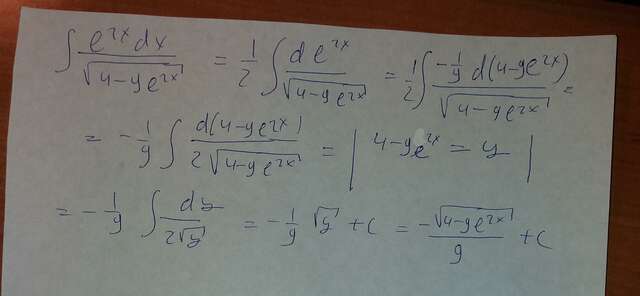 ∫ e^{2x}dx / √(4-9e^{2x}) = 1/2 ∫ de^{2x} / √(4-9e^{2x}) = 1/2 ∫ -1/9 d(4-9e^{2x}) / √(4-9e^{2x}) =
= -1/9 ∫ d(4-9e^{2x}) / 2√(4-9e^{2x}) = | 4-9e^{2x} = y |
= -1/9 ∫ dy / 2√y = -1/9 √y + C = -√(4-9e^{2x}) / 9 + C